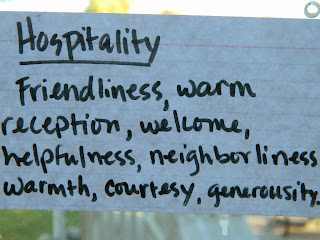 Hospitality
Friendliness, warm
reception, welcome,
helpfulness, neighborliness
warmth, courtesy, generousity.